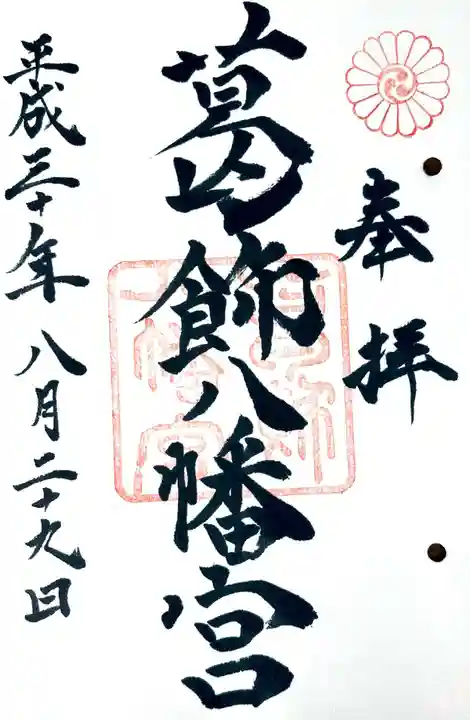 奉拝
葛飾八幡宮
平成三十年八月二十九日